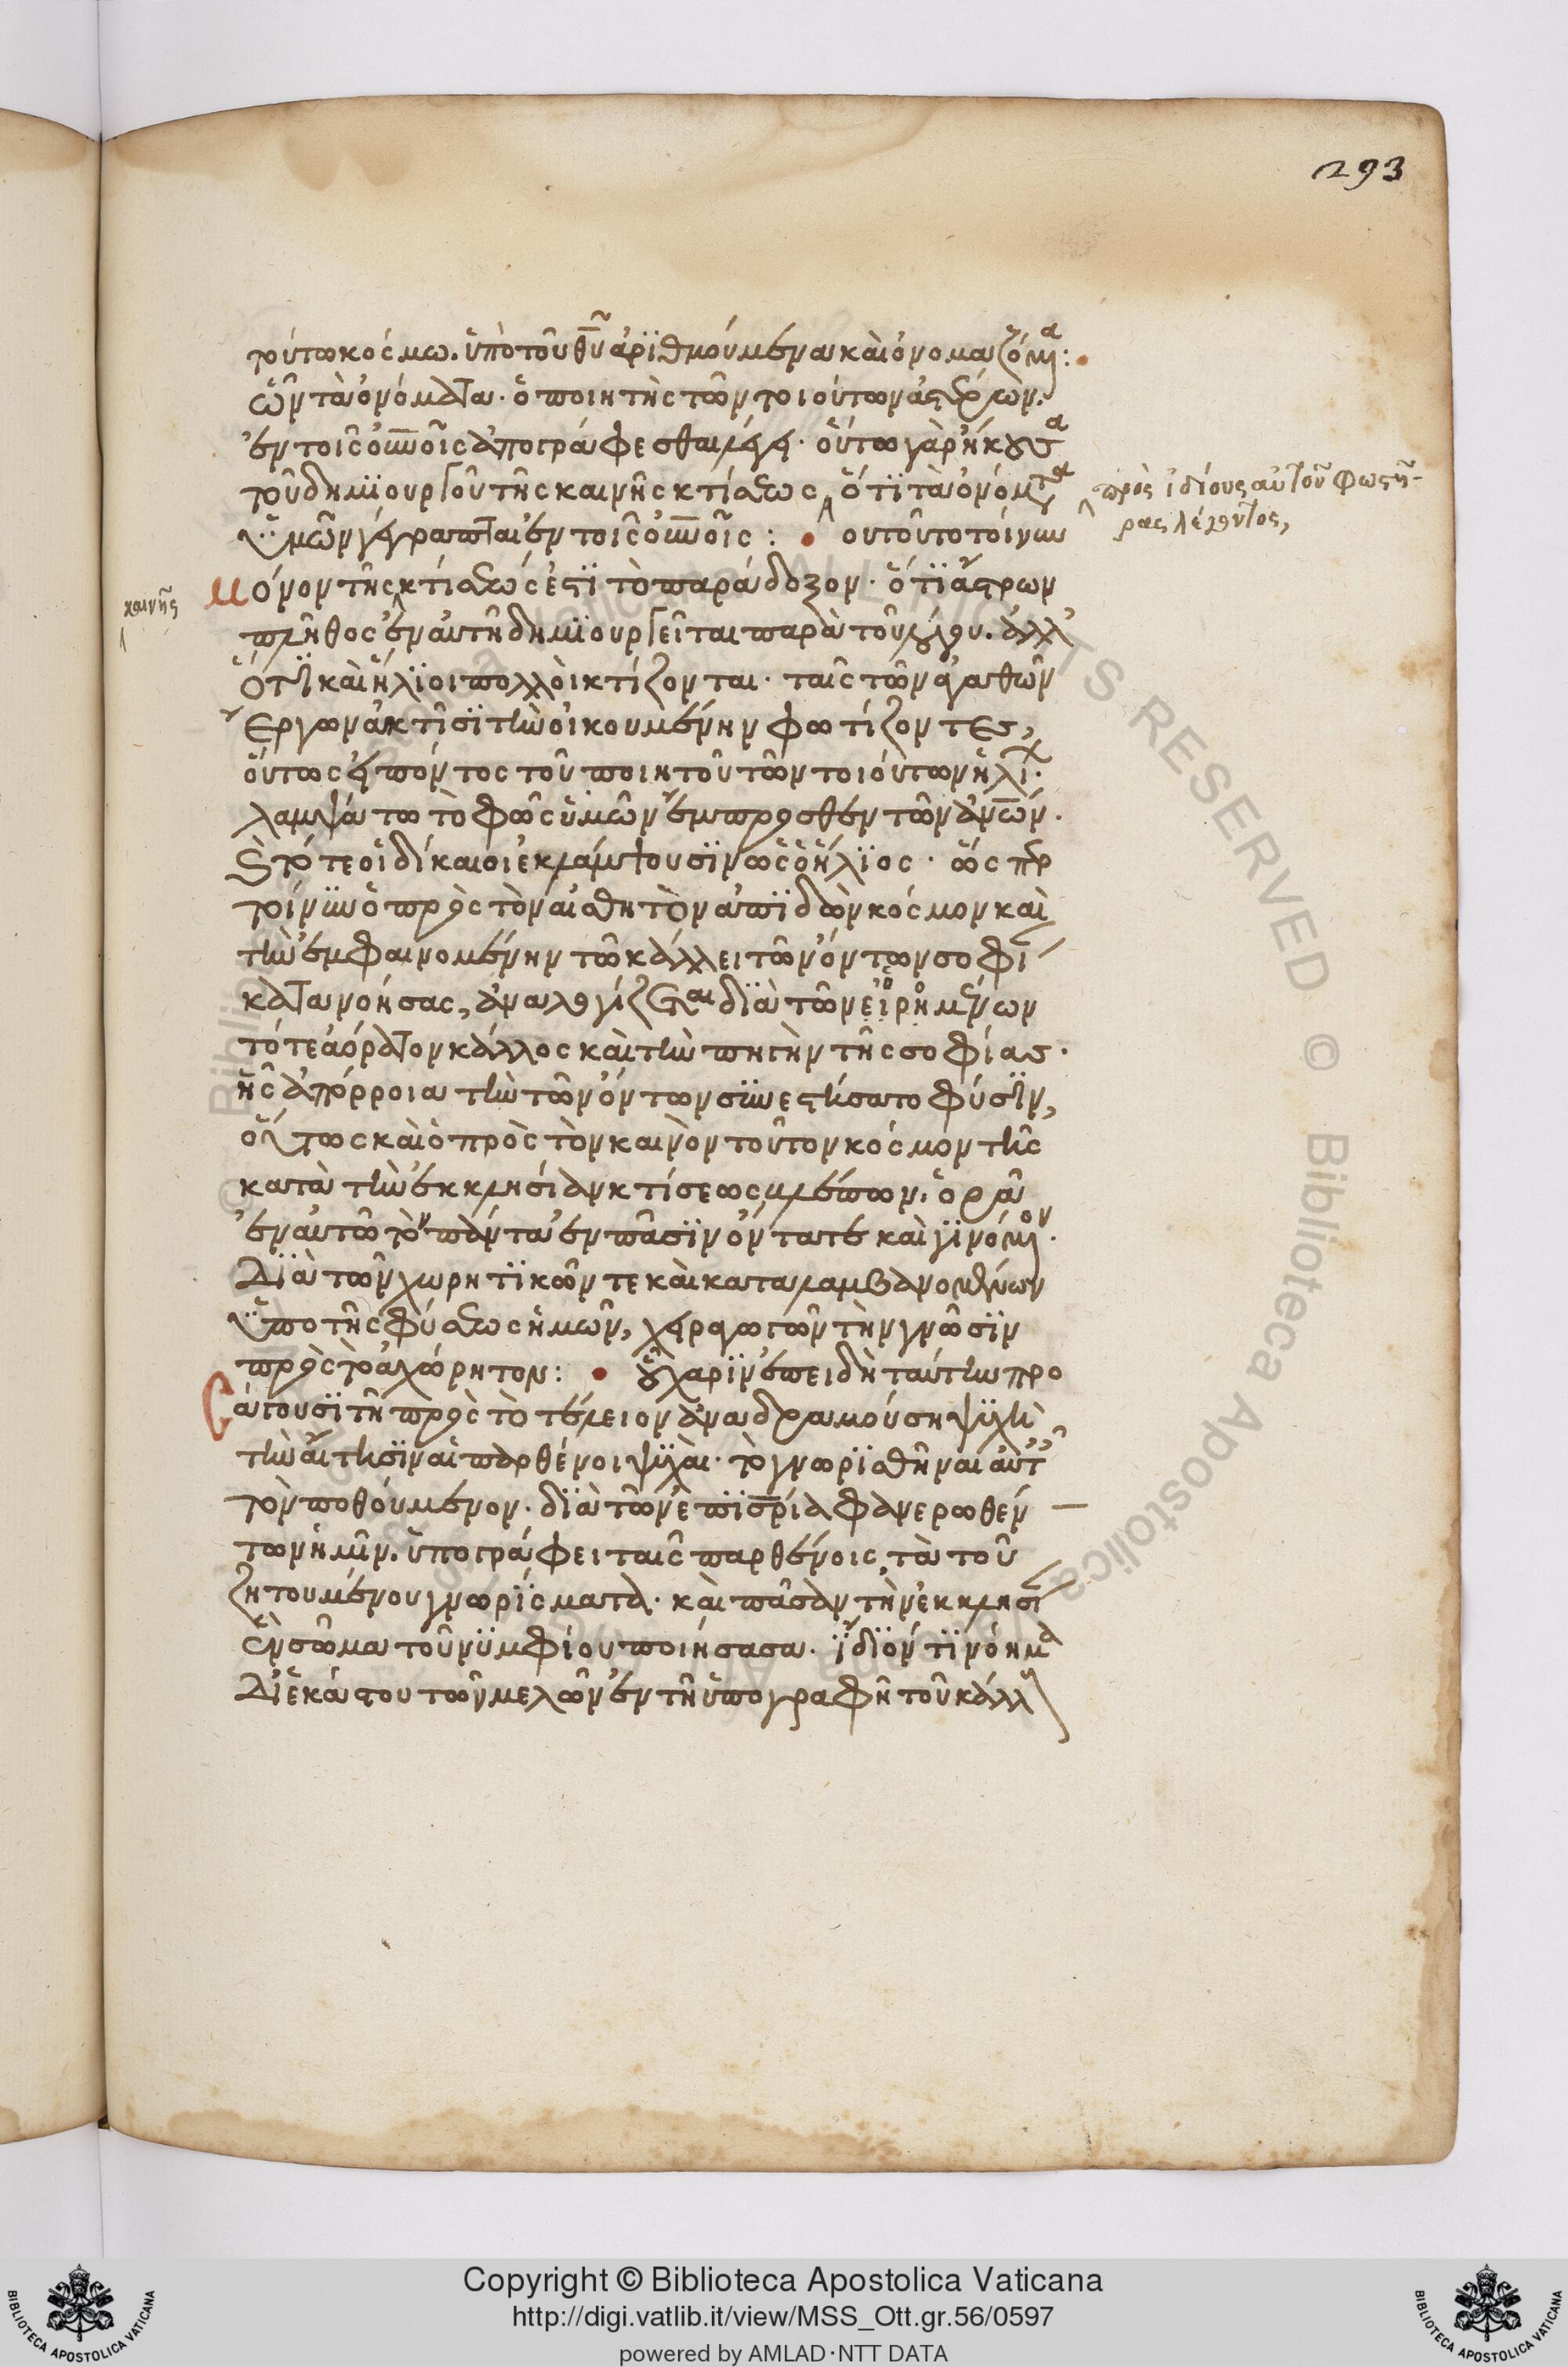 293
τούτω κόσμω. ὑπὸ τοῦ θυ ἀριθμούμενα καὶ ὀνομαζόμενα:
ὧν τὰ ὀνόματα· ὁ ποιητὴς τῶν τοιούτων ἀστέρων.
ἐν τοῖς οὐνοῖς ἀπογράφεσθαι λέγει· οὕτω γὰρ ἤκουσα
τοῦ δημιουργοῦ τῆς καινῆς κτίσεως ὅτι τὰ ὀνόματα
πρὸς ἰδίους αὐτοῦ φωστῆ-
ρας λέγοντος,
ὑμῶν γέγραπται ἐν τοῖς οὐνοῖς: οὐ τοῦτο τοίνυν
μόνον τῆς κτίσεώς ἐστι τὸ παράδοξον· ὅτι ἄστρων
καινῆς
πλῆθος ἐν αὐτῆ δημιουργεῖται παρὰ τοῦ λόγου. ἀλλ'
ὅτι καὶ ἥλιοι πολλοὶ κτίζονται· ταῖς τῶν ἀγαθῶν
ἔργων ἀκτῖσι τὴν οἰκουμένην φωτίζοντες,
οὕτως εἰπόντος τοῦ ποιητοῦ τῶν τοιούτων ἡλί·
λαμψάτω τὸ φῶς ὑμῶν ἔμπροσθεν τῶν ἀνων.
καὶ τότε οἱ δίκαιοι ἐκλάμψουσιν ὡς ὁ ἥλιος· ὥσπερ
τοίνυν ὁ πρὸς τὸν αἰσθητὸν ἀπιδὼν κόσμον καὶ
τὴν ἐμφαινομένην τῶ κάλλει τῶν ὄντων σοφί
κατανοήσας, ἀναλογίζεται διὰ τῶν εἰρημένων
τό τε ἀόρατον κάλλος καὶ τὴν πηγὴν τῆς σοφίας·
ἧς ἀπόρροια τὴν τῶν ὄντων συνεστήσατο φύσιν,
οὕτως καὶ ὁ πρὸς τὸν καινὸν τοῦτον κόσμον τῆς
κατὰ τὴν ἐκκλησίαν κτίσεως βλέπων. ὁρᾶ
ἐν αὐτῶ τὸν πάντα ἐν πᾶσιν ὄντα τε καὶ γινόμενον·
Διὰ τῶν χωρητικῶν τε καὶ καταλαμβανομένων
ὑπὸ τῆς φύσεως ἡμῶν, χειραγωγῶν τὴν γνῶσιν
πρὸς τὸ ἀχώρητον: οὗ χάριν ἐπειδὴ ταύτην προ
Σάγουσι τῆ πρὸς τὸ τέλειον ἀναδραμούση ψυχῆ
τὴν αἴτησιν αἱ παρθένοι ψυχαὶ· τὸ γνωρισθῆναι αὐτ
τὸν ποθούμενον· διὰ τῶν ἐπὶ σρία φανερωθέν
των ἡμῖν. ὑπογράφει ταῖς παρθένοις τὰ τοῦ
ζητουμένου γνωρίσματα· καὶ πᾶσαν τὴν ἐκκλησί
ἓν σῶμα τοῦ νυμφίου ποιήσασα· ἴδιόν τι νόημα
Δι' ἑκάστου τῶν μελῶν ἐν τῆ ὑπογραφῆ τοῦ κάλλ
Copyright © Biblioteca Apostolica Vaticana
http://digi.vatlib.it/view/MSS_Ott.gr.56/0597
powered by AMLAD·NTT DATA